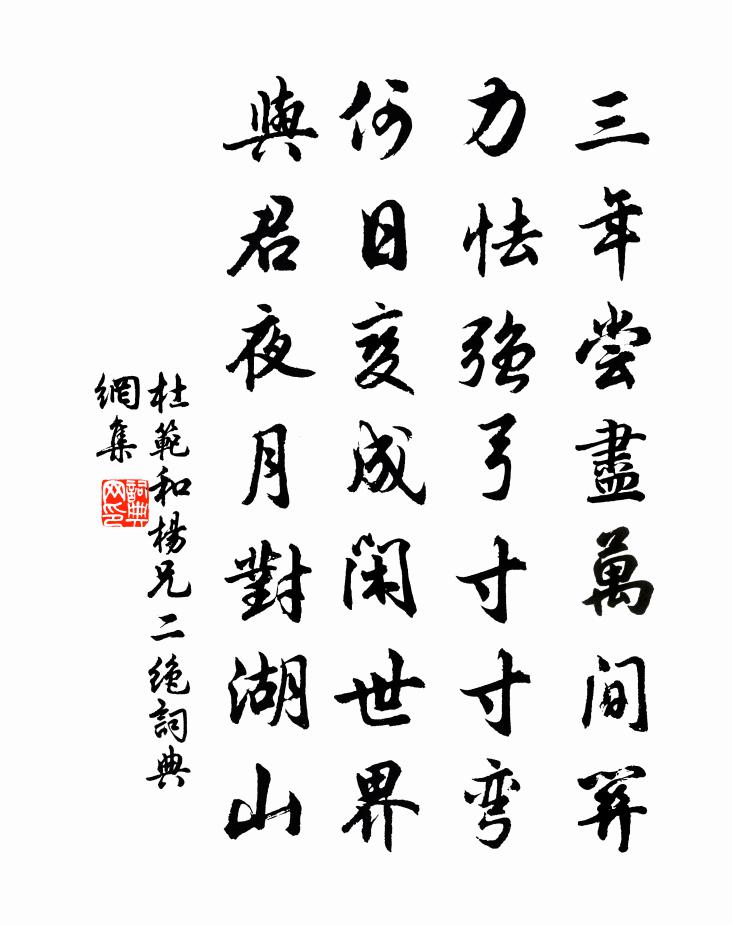 三年尝盡萬間關
力怯强弓寸寸弯
何日变成閑世界
與君夜月對湖山
杜範和楊兄二绝詞典
網集
詞典網印